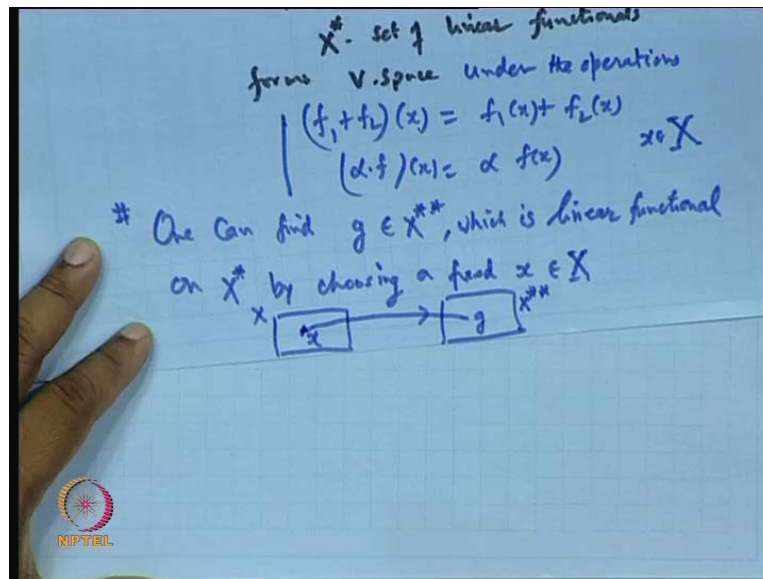 X*- set of linear functionals
forms V.space under the operations
(f₁+f₂)(x) = f₁(x)+ f₂(x)
(α·f)(x)= α f(x) x∈ X
# One can find g ∈ X**, which is linear functional
on X* by choosing a fixed x ∈ X
X x g X**
NPTEL